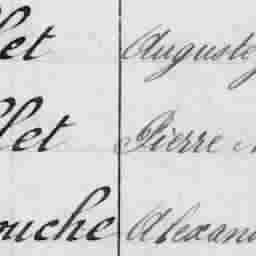 let Auguste
let Pierre
ouche Alexan